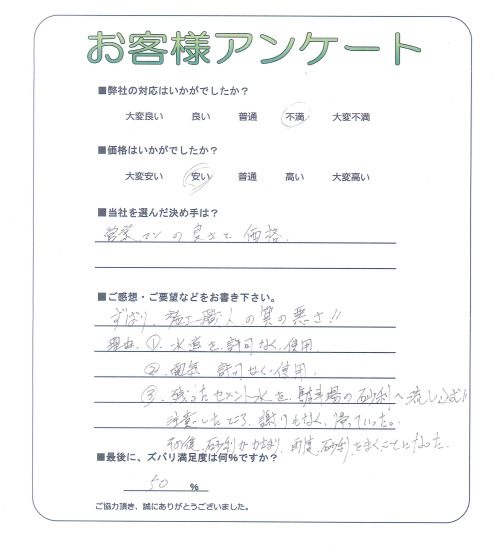 お客様アンケート
■弊社の対応はいかがでしたか？
大変良い 良い 普通 不満 大変不満
■価格はいかがでしたか？
大変安い 安い 普通 高い 大変高い
■当社を選んだ決め手は？
営業マンの良さと価格.
■ご感想・ご要望などをお書き下さい。
ずばり、施工職人の質の悪さ!!
理由.①.水道を許可なく使用.
②.電気 許可なく使用.
③.残ったセメント水を、駐車場の砂利へ流し込む
注意したところ、謝りもなく、帰っていった。
その後、砂利がかたまり、再度、砂利をまくことになった.
■最後に、ズバリ満足度は何%ですか？
50 %
ご協力頂き、誠にありがとうございました。